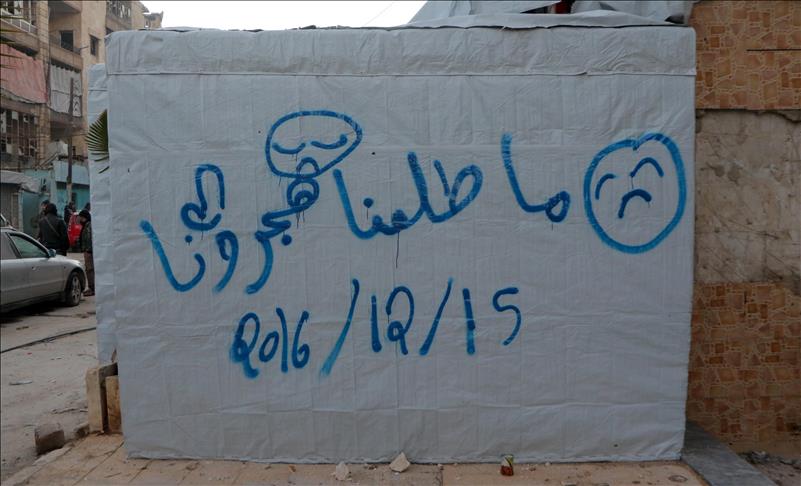 ما طلعنا هجرونا
2016/12/15